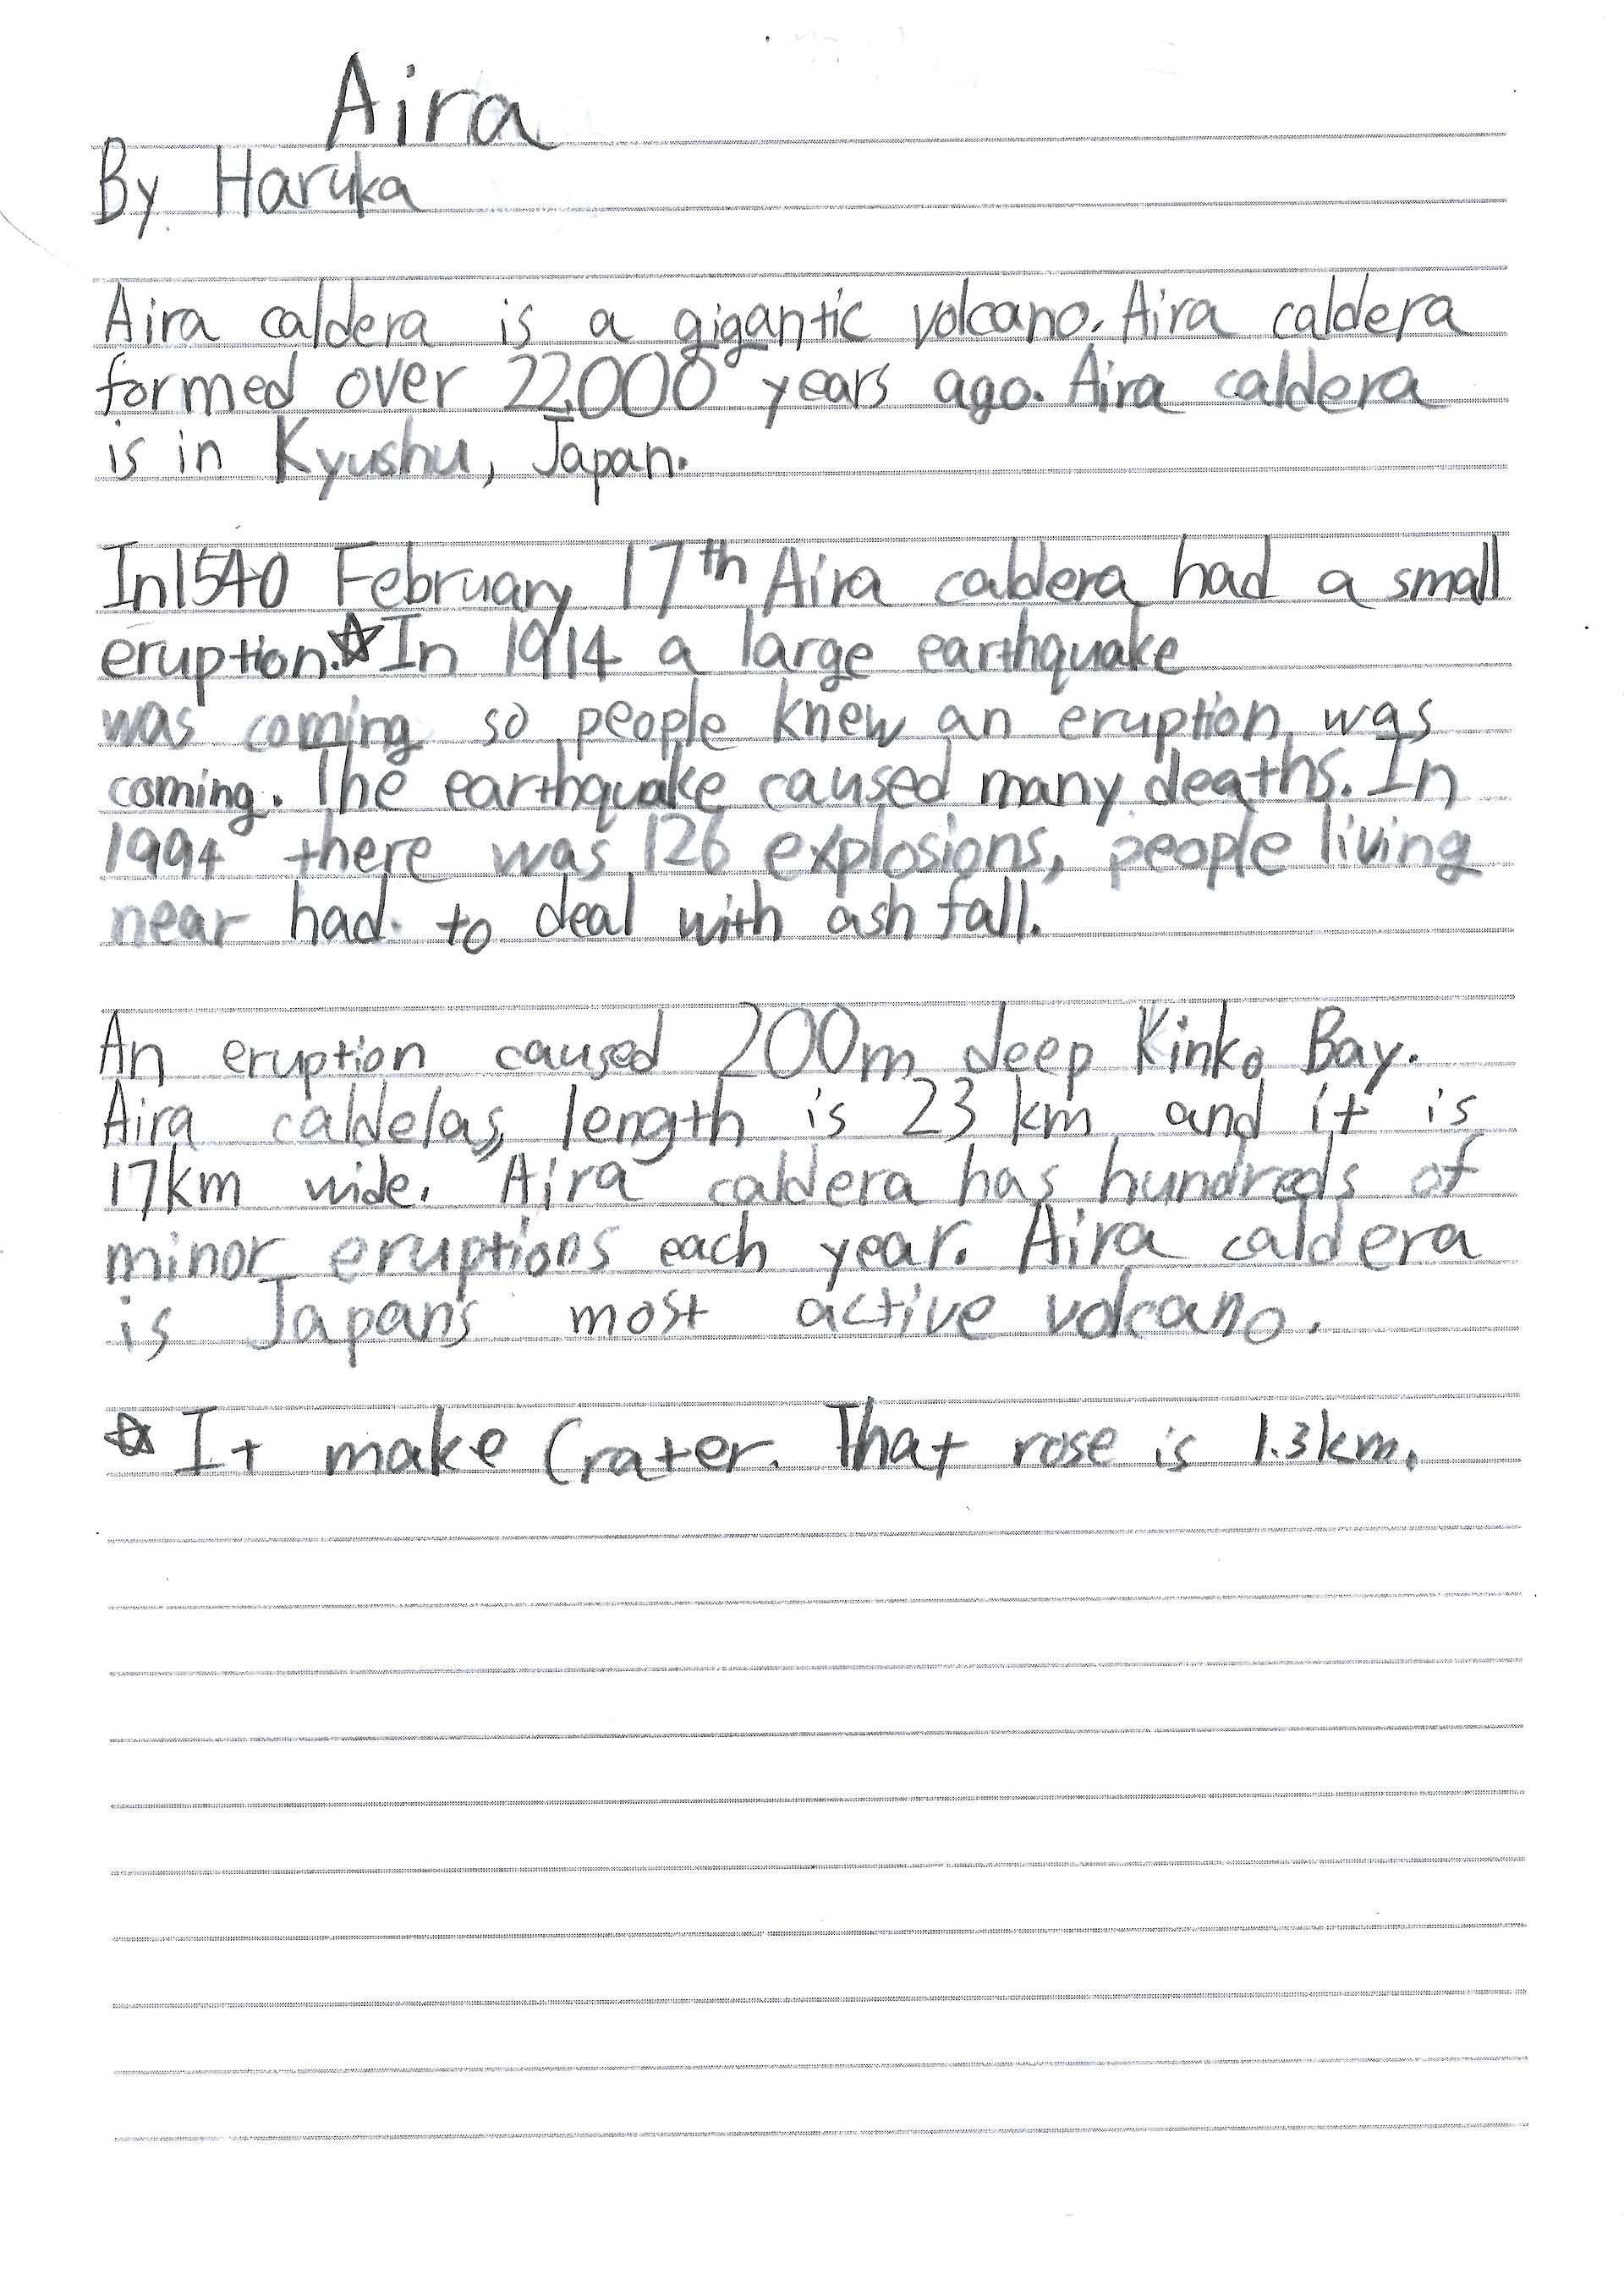 Aira
By Haruka
Aira caldera is a gigantic volcano. Aira caldera
formed over 22,000 years ago. Aira caldera
is in Kyushu, Japan.
In 1540 February 17th Aira caldera had a small
eruption.☆In 1914 a large earthquake
was coming so people knew an eruption was
coming. The earthquake caused many deaths. In
1994 there was 126 explosions, people living
near had to deal with ash fall.
An eruption caused 200m deep Kinko Bay.
Aira caldelas, length is 23 km and it is
17km wide. Aira caldera has hundreds of
minor eruptions each year. Aira caldera
is Japan's most active volcano.
☆ It make Crater. That rose is 1.3km.